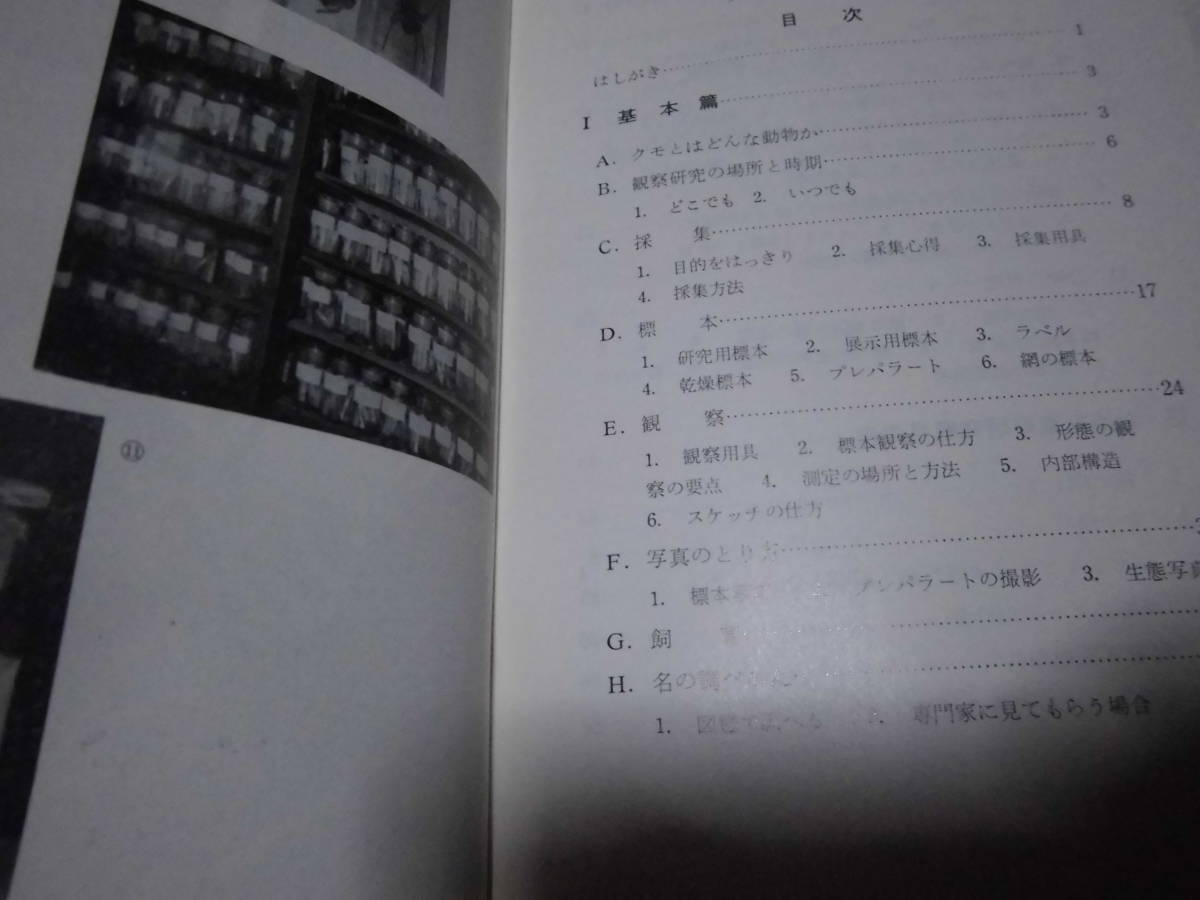 ⑪
目次
はしがき 1
I 基本篇 3
A. クモとはどんな動物か 3
B. 観察研究の場所と時期 6
1. どこでも 2. いつでも
C. 採集 8
1. 目的をはっきり 2. 採集心得 3. 採集用具
4. 採集方法
D. 標本 17
1. 研究用標本 2. 展示用標本 3. ラベル
4. 乾燥標本 5. プレパラート 6. 網の標本
E. 観察 24
1. 観察用具 2. 標本観察の仕方 3. 形態の観
察の要点 4. 測定の場所と方法 5. 内部構造
6. スケッチの仕方
F. 写真のとり方
1. 標本 プレパラートの撮影 3. 生態写真
G. 飼
H. 名の調べ
1. 図鑑で調べる 専門家に見てもらう場合